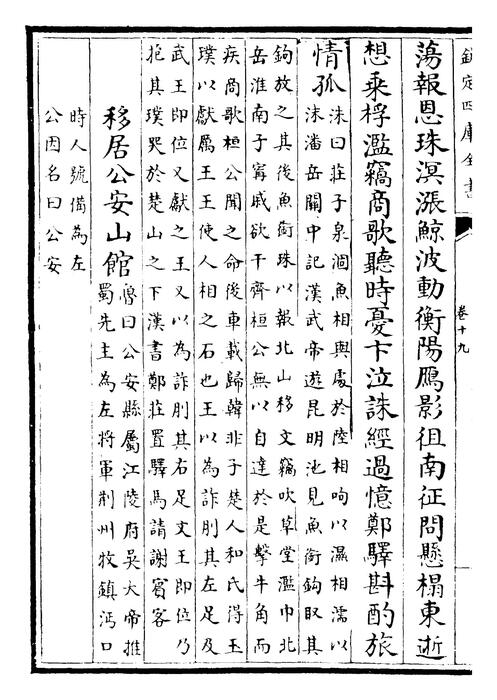 欽定四庫全書
卷十九
蕩報恩珠溟漲鯨波動衡陽鴈影徂南征問懸榻東逝
想乗桴濫竊商歌聽時憂卞泣誅經過憶鄭驛斟酌旅
情孤
洙曰莊子泉涸魚相與處於陸相呴以濕相濡以
沫潘岳關中記漢武帝遊昆明池見魚銜鈎取其
鈎放之其後魚銜珠以報北山移文竊吹草堂濫巾北
岳淮南子寗戚欲干齊桓公無以自達於是擊牛角而
疾商歌桓公聞之命後車載歸韓非子楚人和氏得玉
璞以獻厲王王使人相之石也王以為詐刖其左足及
武王即位又獻之王又以為詐刖其右足文王即位乃
抱其璞哭於楚山之下漢書鄭莊置驛馬請謝賓客
移居公安山館
魯曰公安縣屬江陵府吳大帝推
蜀先主為左將軍荆州牧鎮沔口
時人號備為左
公因名曰公安